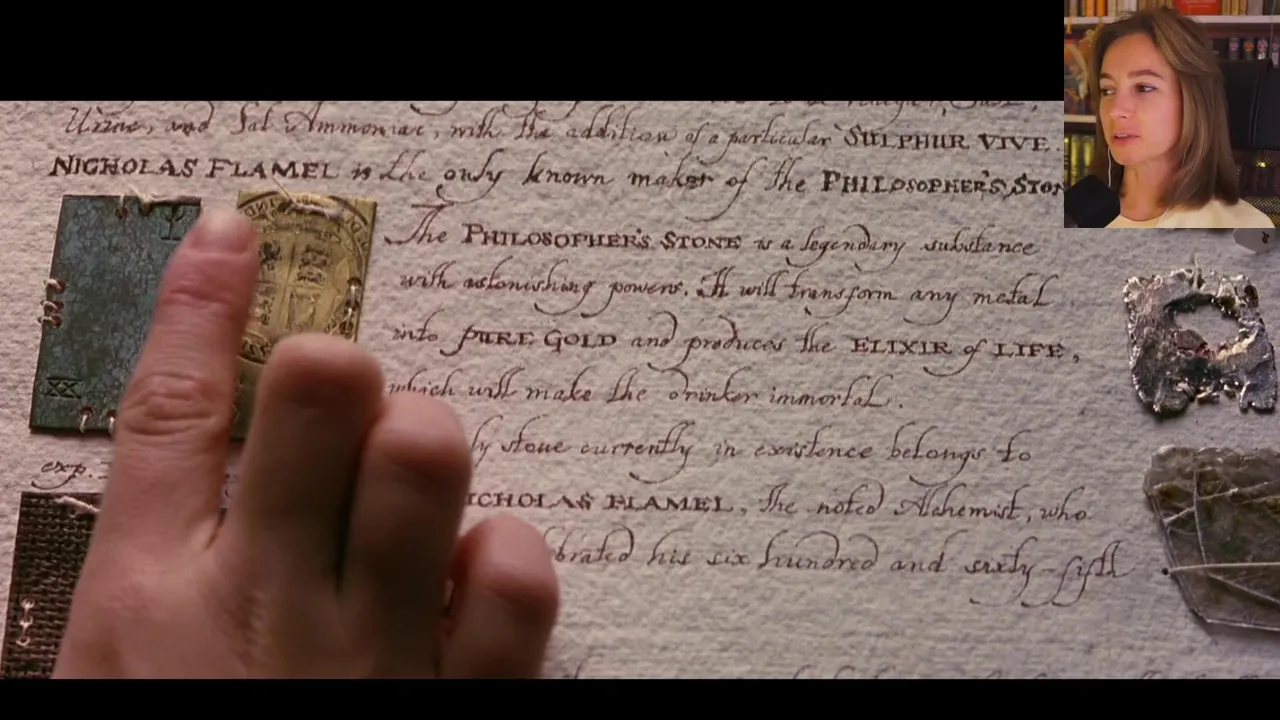 Urine, and Sal Ammoniac, with the addition of a particular SULPHUR VIVE.
NICHOLAS FLAMEL is the only known maker of the PHILOSOPHER'S STON
The PHILOSOPHER'S STONE is a legendary substance
with astonishing powers. It will transform any metal
into PURE GOLD and produces the ELIXIR of LIFE,
which will make the drinker immortal.
ly stone currently in existence belongs to
ICHOLAS FLAMEL, the noted Alchemist, who
brated his six hundred and sixty-fifth
exp.
XX